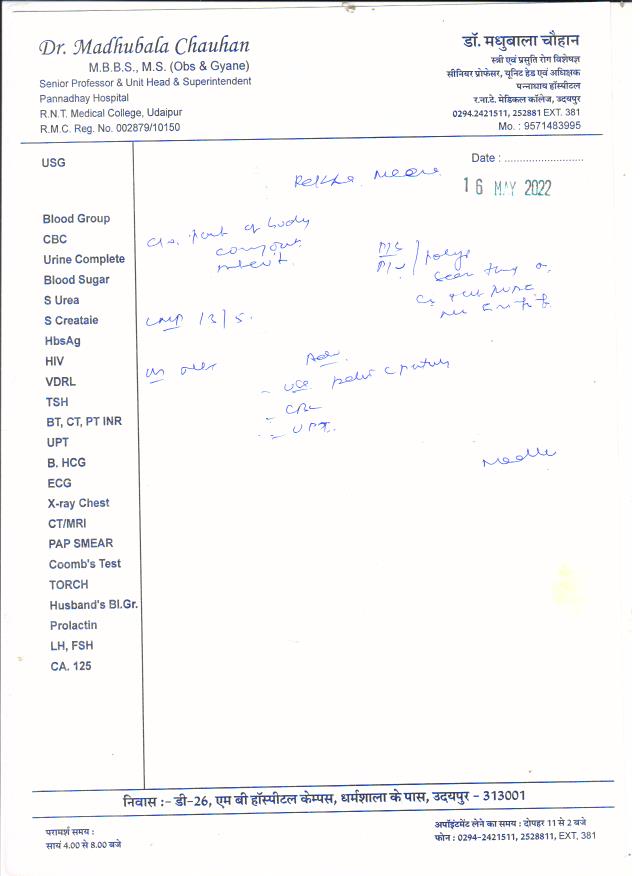 Dr. Madhubala Chauhan
M.B.B.S., M.S. (Obs & Gyane)
Senior Professor & Unit Head & Superintendent
Pannadhay Hospital
R.N.T. Medical College, Udaipur
R.M.C. Reg. No. 002879/10150
डॉ. मधुबाला चौहान
स्त्री एवं प्रसुति रोग विशेषज्ञ
सीनियर प्रोफेसर, यूनिट हेड एवं अधिक्षक
पन्नाधाय हॉस्पीटल
र.ना.टे. मेडिकल कॉलेज, उदयपुर
0294.2421511, 252881 EXT. 381
Mo. : 9571483995
USG
Date :
16 MAY 2022
Blood Group
CBC
Urine Complete
Blood Sugar
S Urea
S Createaie
HbsAg
HIV
VDRL
TSH
BT, CT, PT INR
UPT
B. HCG
ECG
X-ray Chest
CT/MRI
PAP SMEAR
Coomb's Test
TORCH
Husband's Bl.Gr.
Prolactin
LH, FSH
CA. 125
part of body
LMP 13/5.
Adv.
- CBC
- UPT.
निवास :- डी-26, एम बी हॉस्पीटल केम्पस, धर्मशाला के पास, उदयपुर - 313001
परामर्श समय :
सायं 4.00 से 8.00 बजे
अपॉइंटमेंट लेने का समय : दोपहर 11 से 2 बजे
फोन : 0294-2421511, 2528811, EXT, 381